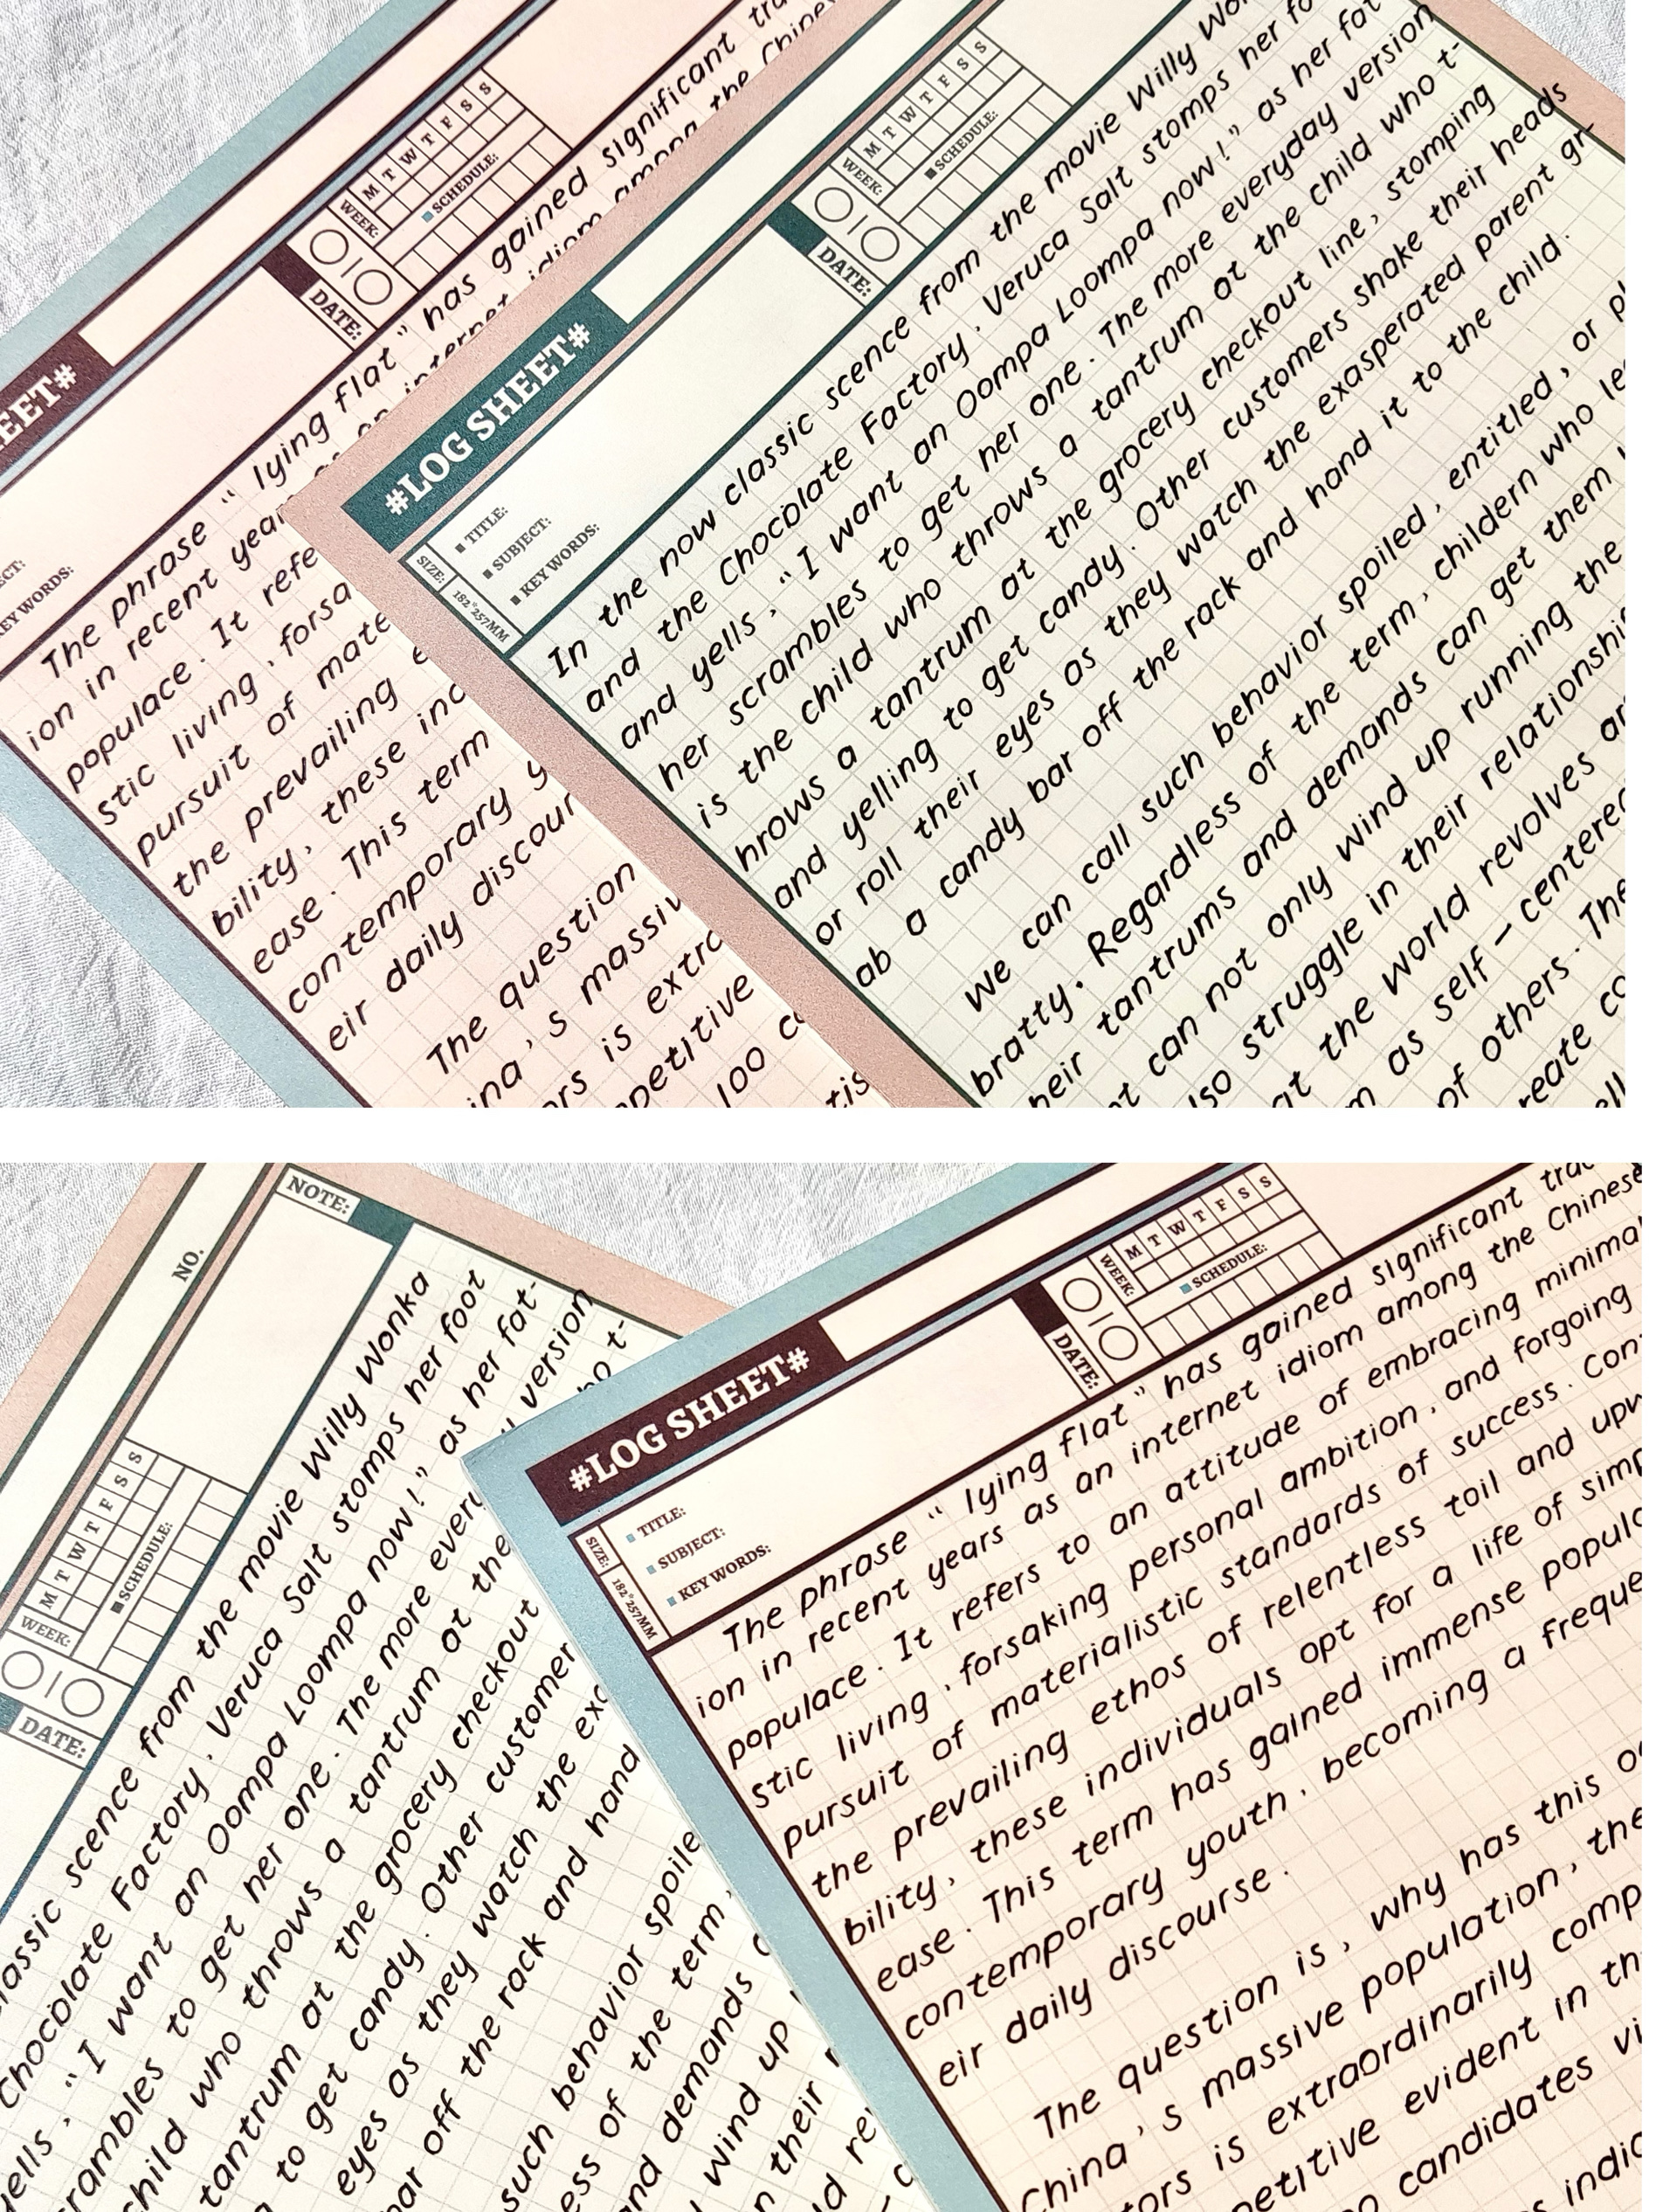 EET#
DATE:
WEEK:
M T W T F S S
SCHEDULE:
KEY WORDS:
The phrase “ lying flat ” has gained significant
ion in recent internet idiom among the
populace. It
stic living, forsa
pursuit of mate
the prevailing
bility, these
ease. This term
contemporary
eir daily discour
The question
ina's massiv
ors is extra
petitive
100
#LOG SHEET#
DATE:
WEEK:
M T W T F S S
SCHEDULE:
TITLE:
SUBJECT:
KEY WORDS:
SIZE:
182*257MM
In the now classic scence from the movie Willy
and the Chocolate Factory, Veruca Salt stomps her
and yells, “I want an Oompa Loompa now!” as her fat
her scrambles to get her one. The more everyday version
is the child who throws a tantrum at the child who t-
hrows a tantrum at the grocery checkout line, stomping
and yelling to get candy. Other customers shake their heads
or roll their eyes as they watch the exasperated parent gr-
ab a candy bar off the rack and hand it to the child.
We can call such behavior spoiled, entitled, or
bratty. Regardless of the term, childern who
heir tantrums and demands can get them
t can not only wind up running the
lso struggle in their relationshi
at the world revolves
m as self-centered
of others. The
reate
NO.
NOTE:
M T W T F S S
SCHEDULE:
WEEK:
DATE:
lassic scence from the movie Willy Wonka
Chocolate Factory, Veruca Salt stomps her foot
ells, “I want an Oompa Loompa now!” as her fat-
rambles to get her one. The more every version
child who throws a tantrum at the t-
tantrum at the grocery checkout
to get candy. Other customer
eyes as they watch the
bar off the rack and hand
such behavior spoile
ess of the term,
and demands
wind up
their
#LOG SHEET#
DATE:
WEEK:
M T W T F S S
SCHEDULE:
TITLE:
SUBJECT:
KEY WORDS:
SIZE:
182*257MM
The phrase “ lying flat ” has gained significant
ion in recent years as an internet idiom among the Chinese
populace. It refers to an attitude of embracing minima
stic living, forsaking personal ambition, and forgoing
pursuit of materialistic standards of success. Con
the prevailing ethos of relentless toil and upw
bility, these individuals opt for a life of simp
ease. This term has gained immense popula
contemporary youth, becoming a freque
eir daily discourse.
The question is, why has this
China's massive population, the
tors is extraordinarily comp
petitive evident in th
candidates vi
indic